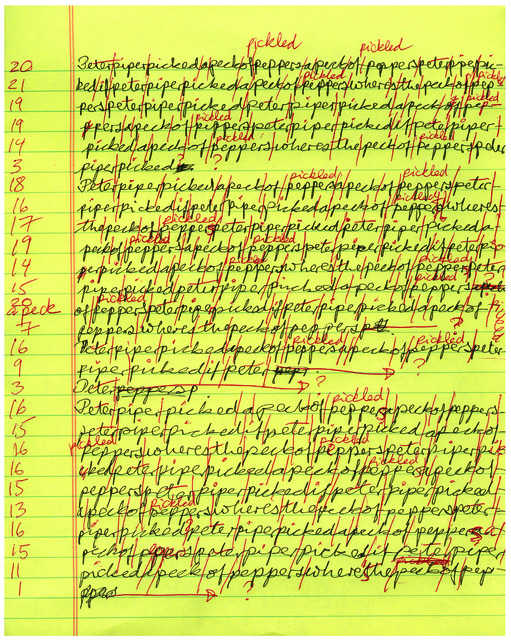 pickled pickled
20 Peterpiperpickedapeckofpeppersapeckofpepperspeterpiperpic-
pickled
21 kedifpeterpiperpickedapeckofpepperswheresthepeckofpep
pickled
19 perspeterpiperpickedpeterpiperpickedapeckofpep-
pickled
19 persapeckofpepperspeterpiperpickedifpeterpiper
14 pickedapeckofpepperswheresthepeckofpepperspeter
3 piperpicked ? ?
pickled pickled
18 Peterpiperpickedapeckofpeppersapeckofpepperspeter-
pickled
16 piperpickedifpeterpiperpickedapeckofpepperswheres
pickled
17 thepeckofpepperspeterpiperpickedpeterpiperpickeda
pickled pickled
19 peckofpeppersapeckofpepperspeterpiperpickedifpeterpi
pickled
14 perpickedapeckofpepperswheresthepeckofpepperspeter
pickled
15 piperpickedpeterpiperpickedapeckofpeppers
20 pickled
apeck ofpepperspeterpiperpickedifpeterpiperpickedapeckof
7 pepperswheresthepeckofpeppers ?
pickled pickled
16 Peterpiperpickedapeckofpeppersapeckofpepperspeter
9 piperpickedifpeter ?
3 Peter peppersp ?
pickled
16 Peterpiperpickedapeckofpeppersapeckofpeppers
15 peterpiperpickedifpeterpiperpickedapeckof
pickled pickled
16 pepperswheresthepeckofpepperspeterpiperpic
pickled
16 kedpeterpiperpickedapeckofpeppersapeckof
15 pepperspeterpiperpickedifpeterpiperpicked
pickled
13 apeckofpepperswheresthepeckofpepperspeter-
16 piperpickedpeterpiperpickedapeckofpeppersa
15 peckofpepperspeterpiperpickedifpeterpiper
11 pickedapeckofpepperswheresthepeckofpep-
1 pers ?